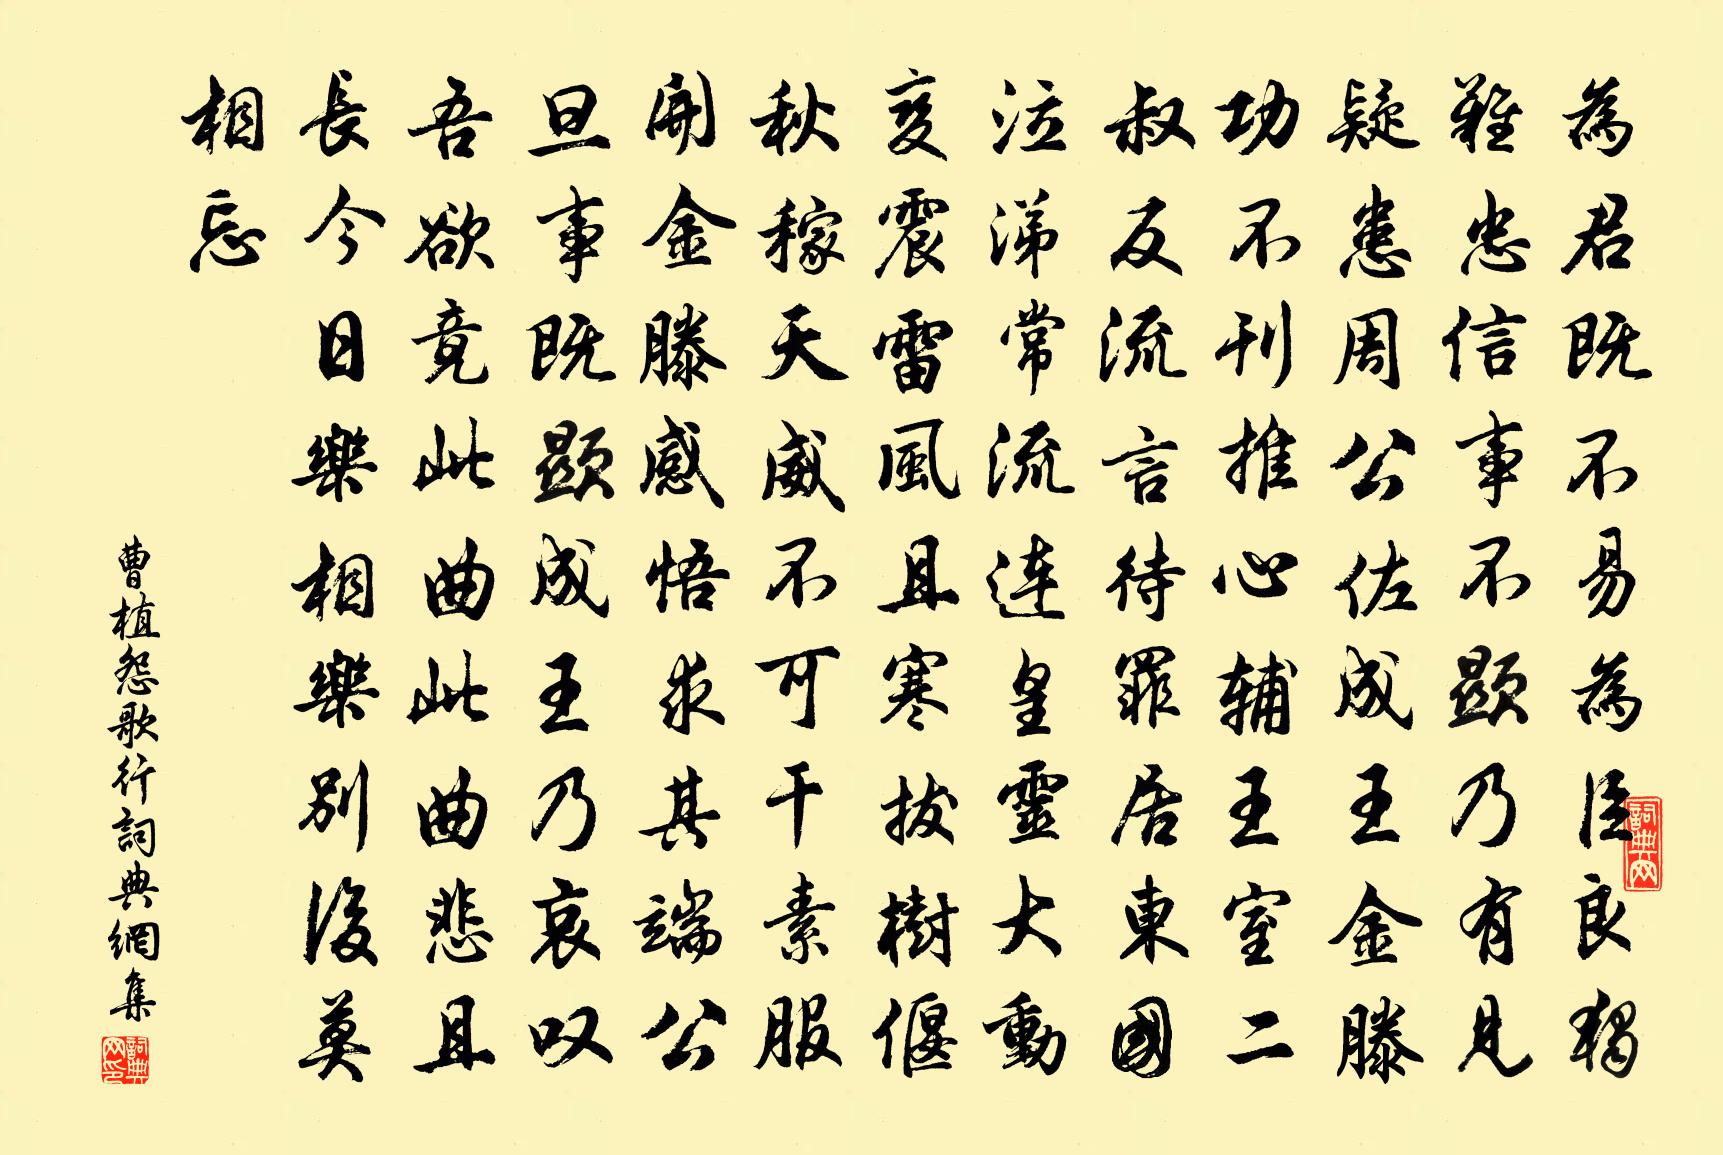 為君既不易為臣良獨
難忠信事不顯乃有見
疑患周公佐成王金滕
功不刊推心輔王室二
叔反流言待罪居東國
泣涕常流連皇靈大動
變震雷風且寒拔樹偃
秋稼天威不可干素服
開金滕感悟求其端公
旦事既顯成王乃哀叹
吾欲竟此曲此曲悲且
長今日樂相樂別後莫
相忘
曹植怨歌行詞典網集
詞典网
詞典网印